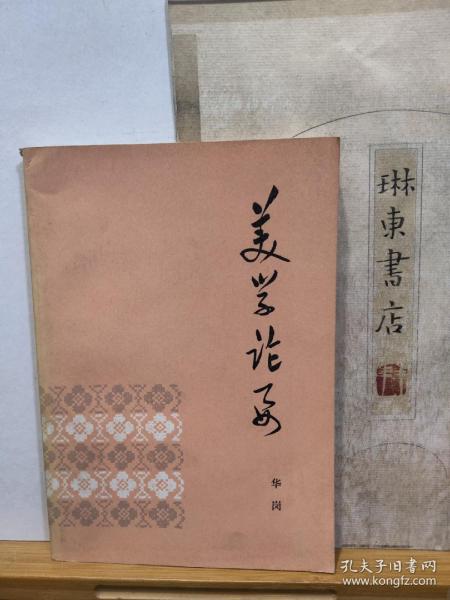 美学论要
华岗
琳東書店
孔夫子旧书网
www.kongfz.com